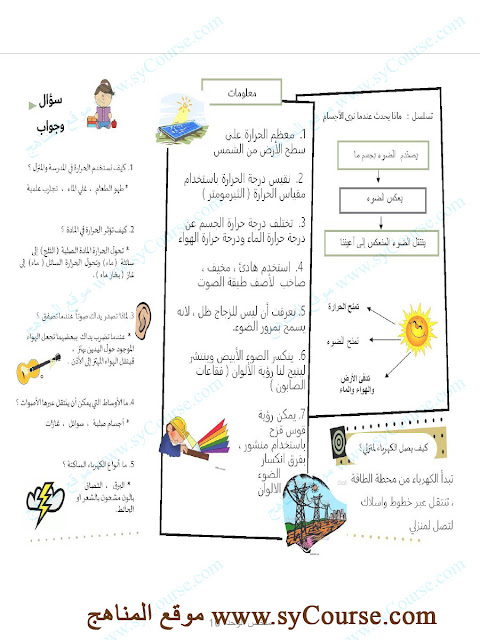 تسلسل : ماذا يحدث عندما نرى الأجسام
يصطدم الضوء بجسم ما
يعكس لضوء
ينتقل الضوء المنعكس إلى أعيننا
تمنح الحرارة
تمنح الضوء
تدفئ الأرض
والهواء والماء
كيف يصل الكهرباء لمنزلي؟
تبدأ الكهرباء من محطة الطاقة
، تنتقل عبر خطوط واسلاك
لتصل لمنزلي
معلومات
1. معظم الحرارة على
سطح الأرض من الشمس
2. نقيس درجة الحرارة باستخدام
مقياس الحرارة ( الثيرمومتر )
3. تختلف درجة حرارة الجسم عن
درجة حرارة الماء ودرجة حرارة الهواء
4. استخدم هادئ ، مخيف ،
صاخب لأصف طبقة الصوت
5. تعرفت أن ليس للزجاج ظل ، لانه
يسمح بمرور الضوء.
6. ينكسر الضوء الأبيض وينتشر
لينتج لنا رؤية الألوان ( فقاعات
الصابون )
7. يمكن رؤية
قوس قزح
باستخدام منشور ،
يفرق انكسار
الضوء
الالوان
سؤال
وجواب
1. كيف نستخدم الحرارة في المدرسة والمنزل ؟
* طهو الطعام ، غلي الماء ، تجارب علمية
2. كيف تؤثر الحرارة في المادة ؟
* تحول الحرارة المادة الصلبة ( الثلج) إلى
سائلة (ماء) وتحول الحرارة السائل ( ماء) إلى
غاز ( بخار ماء ).
3. لماذا تصدر يداك صوتاً عندما تصفق ؟
* عندما تضرب يداك ببعضهما تجعل الهواء
الموجود حول اليدين يهتز ،
فينتقل الهواء المهتز إلى الأذن .
4. ما الأوساط التي يمكن أن ينتقل عبرها الأصوات ؟
* أجسام صلبة ، سوائل ، غازات
5. ما أنواع الكهرباء الساكنة ؟
* البرق ،
بالون مشحون بالشعر أو
الحائط.
موقع المناهج www.syCourse.com